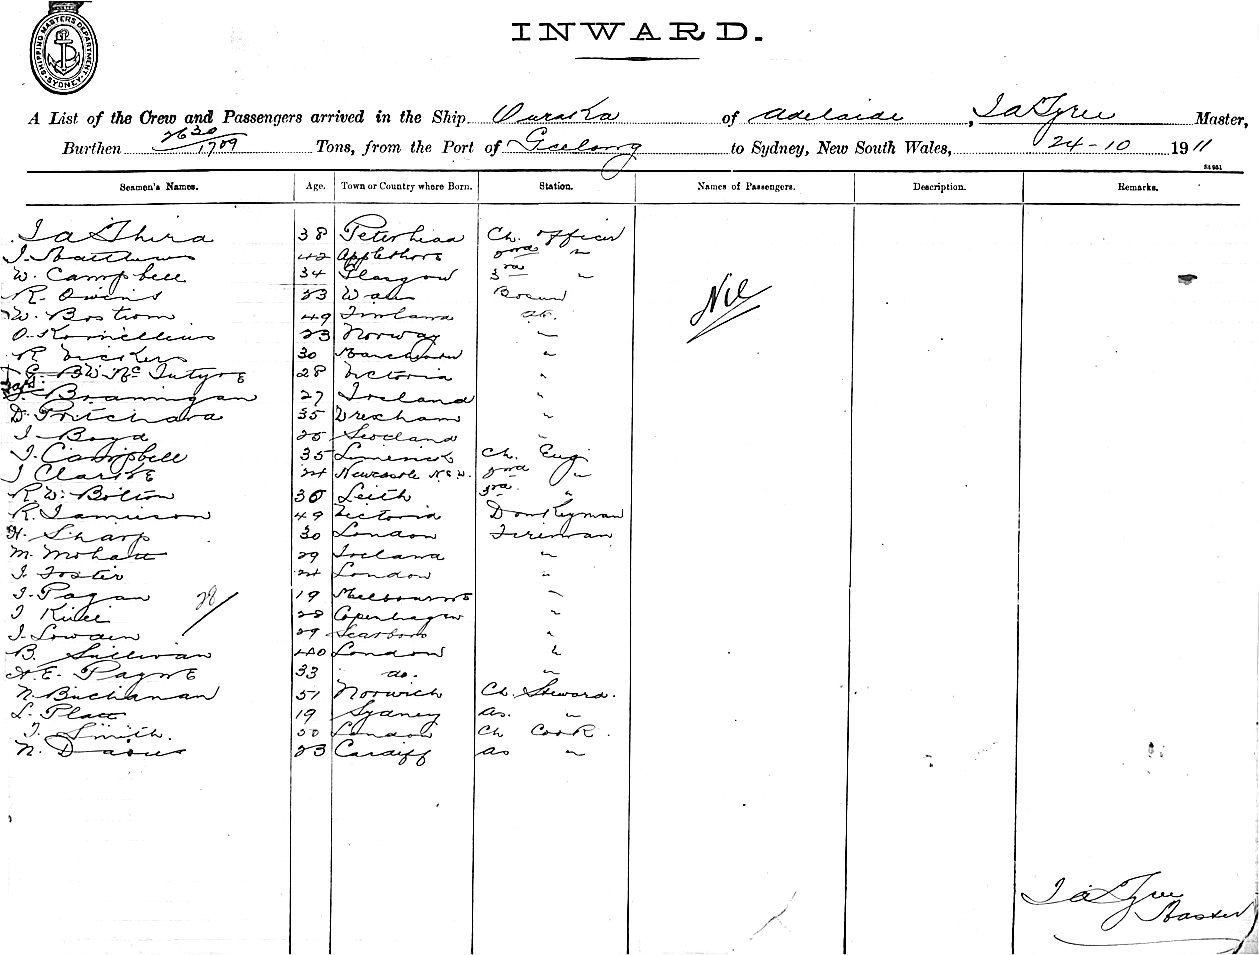 SHIPPING MASTERS DEPARTMENT SYDNEY
INWARD.
A List of the Crew and Passengers arrived in the Ship Ouraka of Adelaide, Master,
Burthen 2630/1709 Tons, from the Port of Geelong to Sydney, New South Wales, 24-10 1911
Seamen's Names. Age. Town or Country where Born. Station. Names of Passengers. Description. Remarks.
38 Peterhead Ch. Officer
J. Matthews 42 2nd "
W. Campbell 34 Glasgow 3rd "
R. Owens 23 Bosun
W. Bostrom 49 Finland
O. Kornelius 23 Norway "
R. Vickers 30 "
Mc Intyre 28 Victoria "
Branigan 27 Ireland "
D. Pritchard 35 Wrexham "
J. Boyd Scotland "
J. Campbell 35 Limerick Ch. Eng.
J Clarke 24 Newcastle N.S.W. 2nd "
R. W. Bolton Leith 3rd "
R. Jamieson 49 Victoria Donkeyman
H. Sharp 30 London Fireman
M. 29 Ireland "
J. Foster 24 London "
J. Pagan 28/ 19 Melbourne "
J 28 Copenhagen "
J. 29 "
B. Sullivan 40 London "
H. E. Payne 33 do. "
N. Buchanan 51 Norwich Ch. Steward.
L. Platt 19 Sydney as. "
J. Smith. 50 London Ch Cook.
N. Davies 23 Cardiff as "
Nil
Master